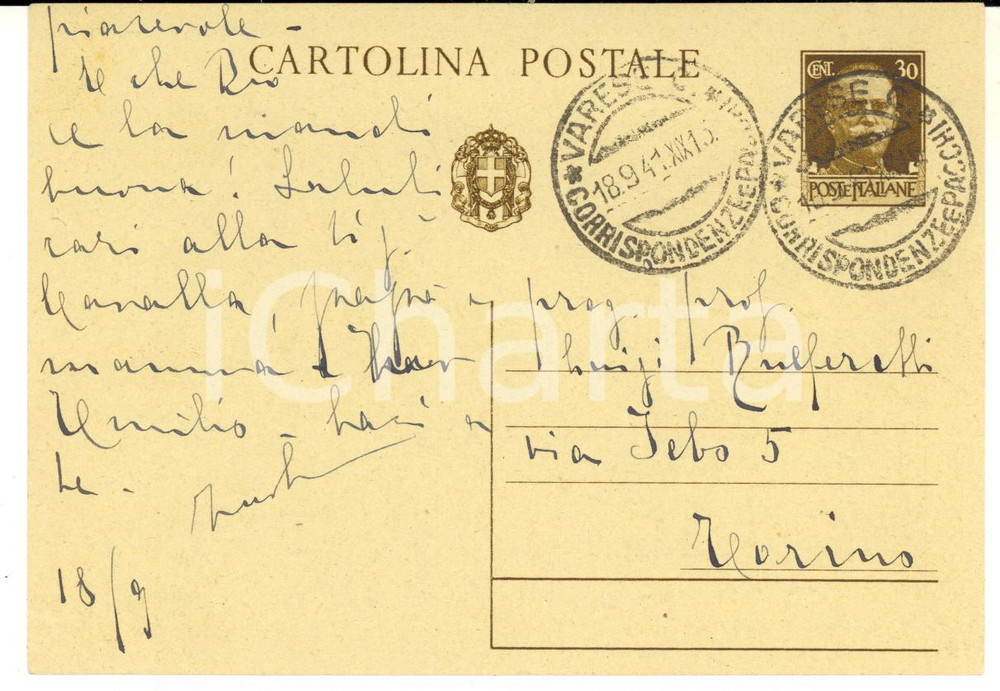 piacevole -
E che Dio
ce la mandi
buona! Saluti
cari alla sig.
Cavalla, papà e
mamma e
Emilio - baci a
te -
18/9
CARTOLINA POSTALE
CENT. 30
POSTE ITALIANE
VARESE C.
18.9.41.XIX 15
CORRISPONDENZE E PACCHI
VARESE C.
CORRISPONDENZE E PACCHI
preg. prof.
Luigi Bulferetti
via Tebo 5
Torino
iCharta